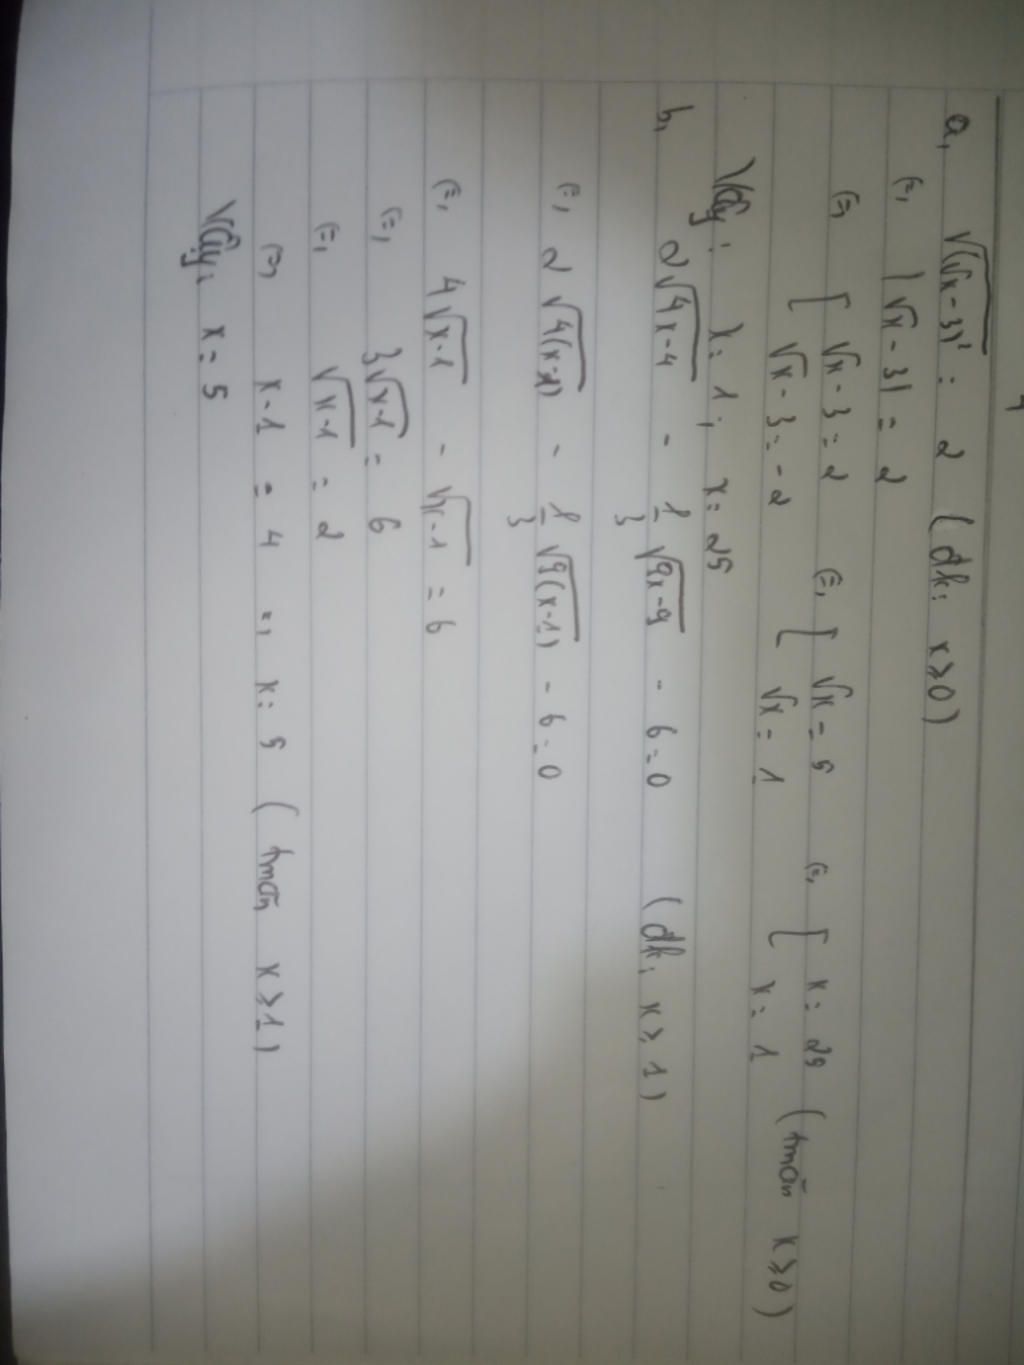 a, √(√x - 3)² = 2 (đk: x ≥ 0)
(=) |√x - 3| = 2
(=) [ √x - 3 = 2 (=) [ √x = 5 (=) [ x = 25 (tmãn x ≥ 0)
√x - 3 = -2 √x = 1 x = 1
Vậy: x = 1; x = 25
b, 2√4x-4 - 1/3 √9x-9 - 6 = 0 (đk: x ≥ 1)
(=) 2√4(x-1) - 1/3 √9(x-1) - 6 = 0
(=) 4√x-1 - √x-1 = 6
(=) 3√x-1 = 6
(=) √x-1 = 2
(=) x-1 = 4 =) x = 5 (tmãn x ≥ 1)
Vậy: x = 5